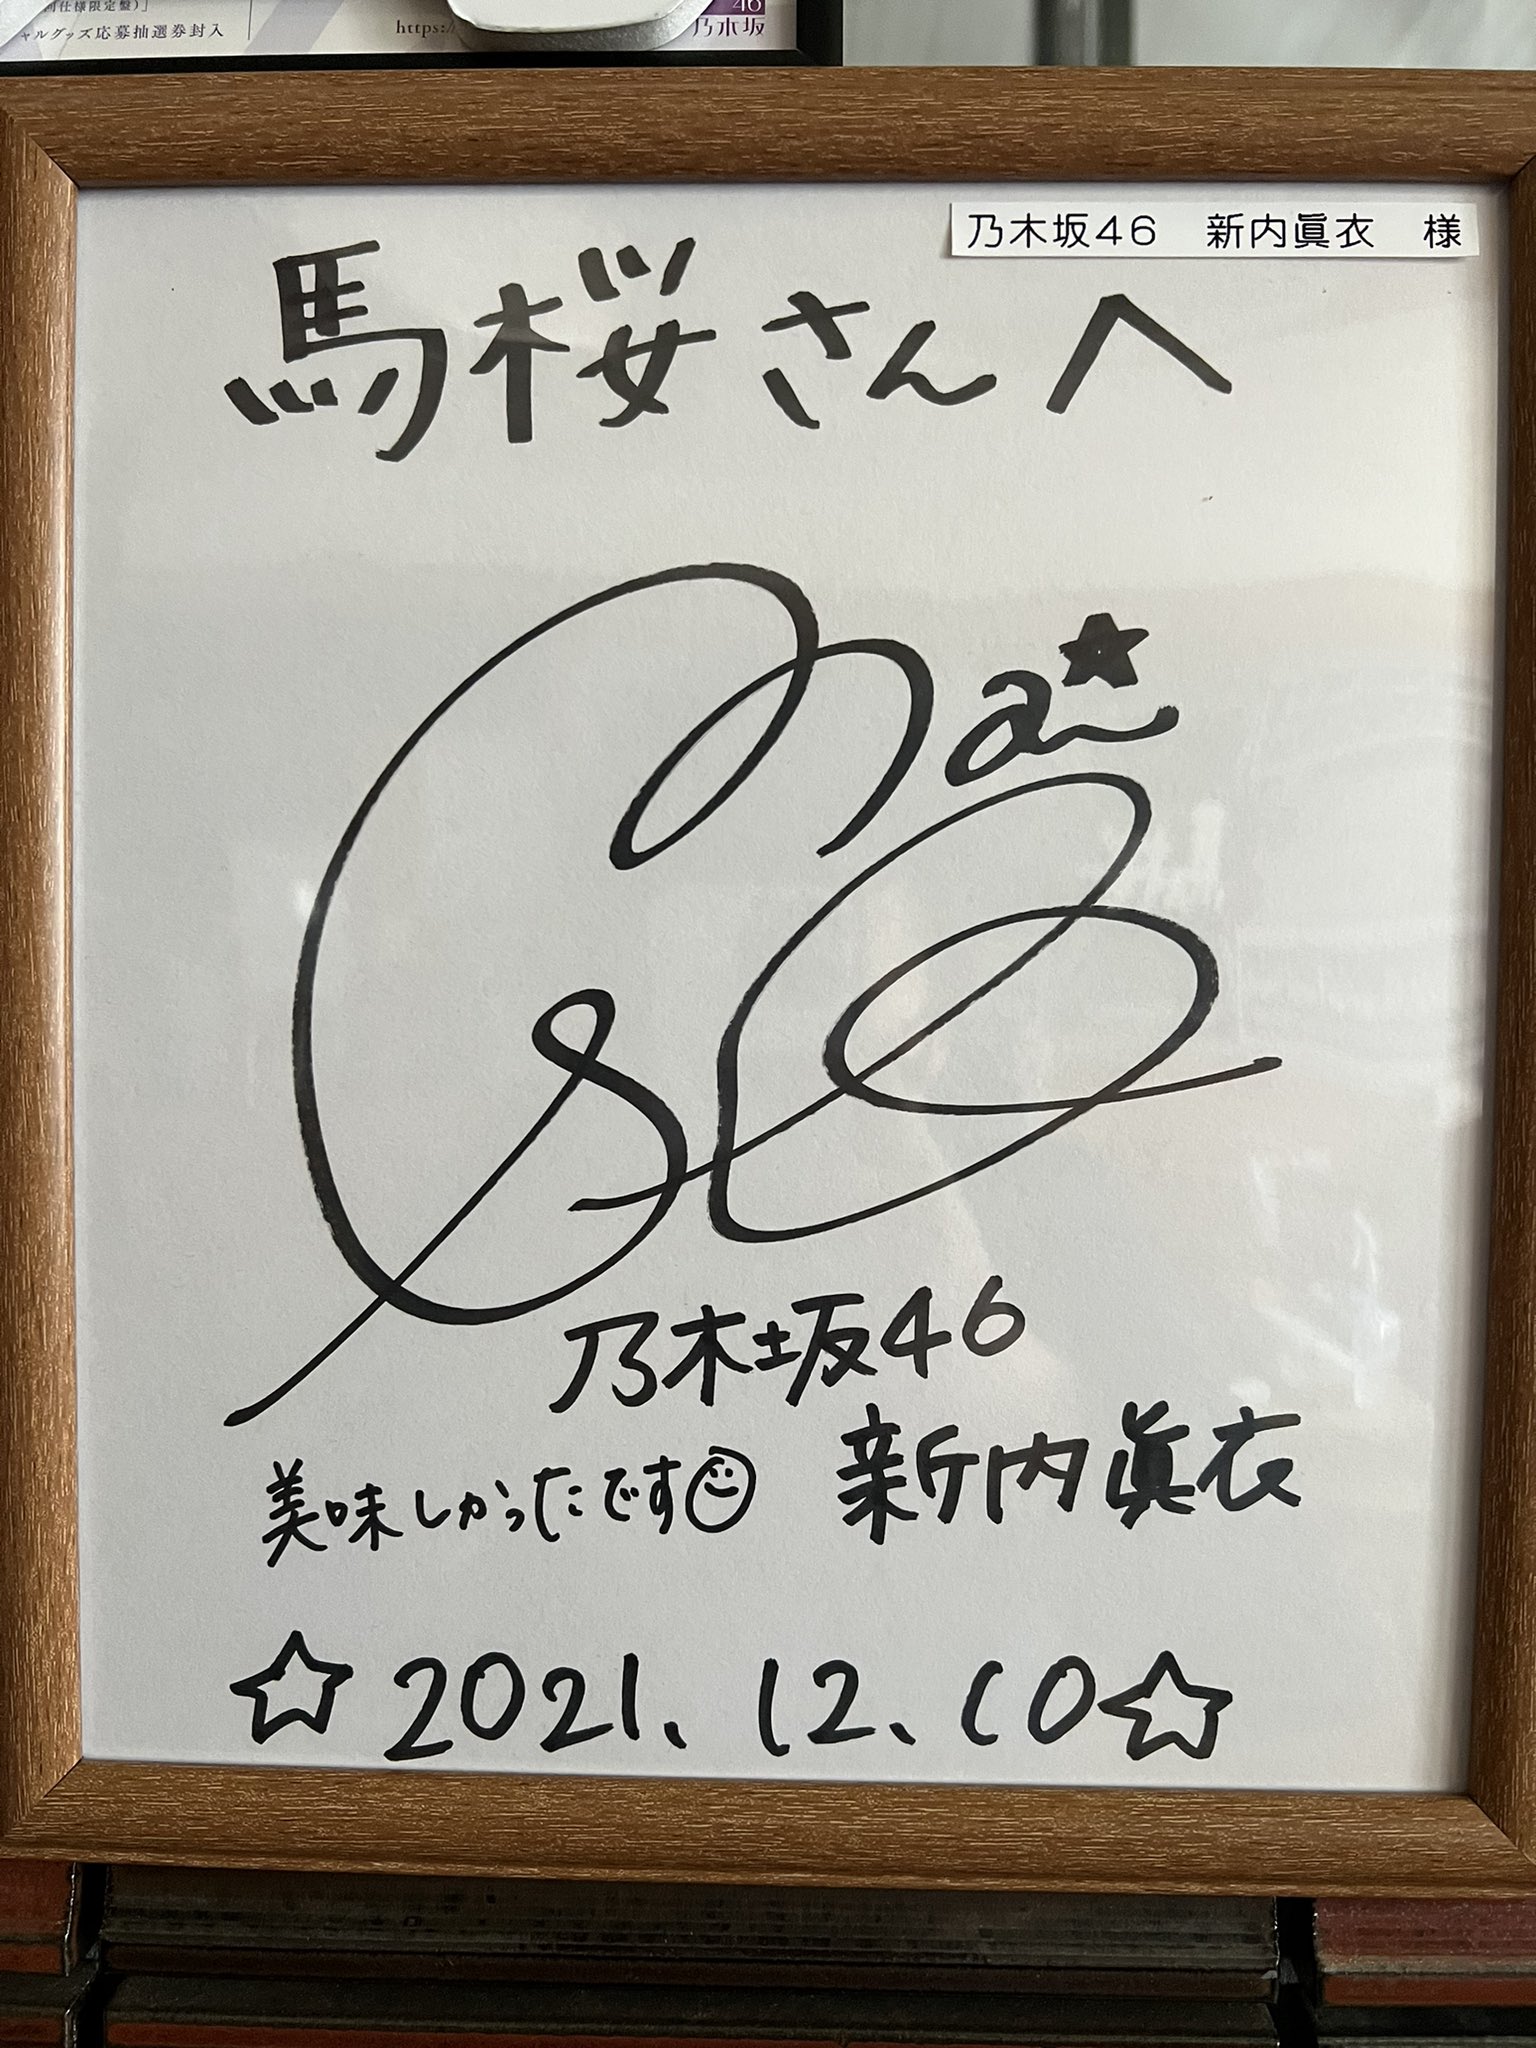 同仕様限定盤)」
ャルグッズ応募抽選券封入
https:/
46
乃木坂
乃木坂46 新内眞衣 様
馬桜さんへ
乃木坂46
新内眞衣
美味しかったです
☆2021.12.10☆